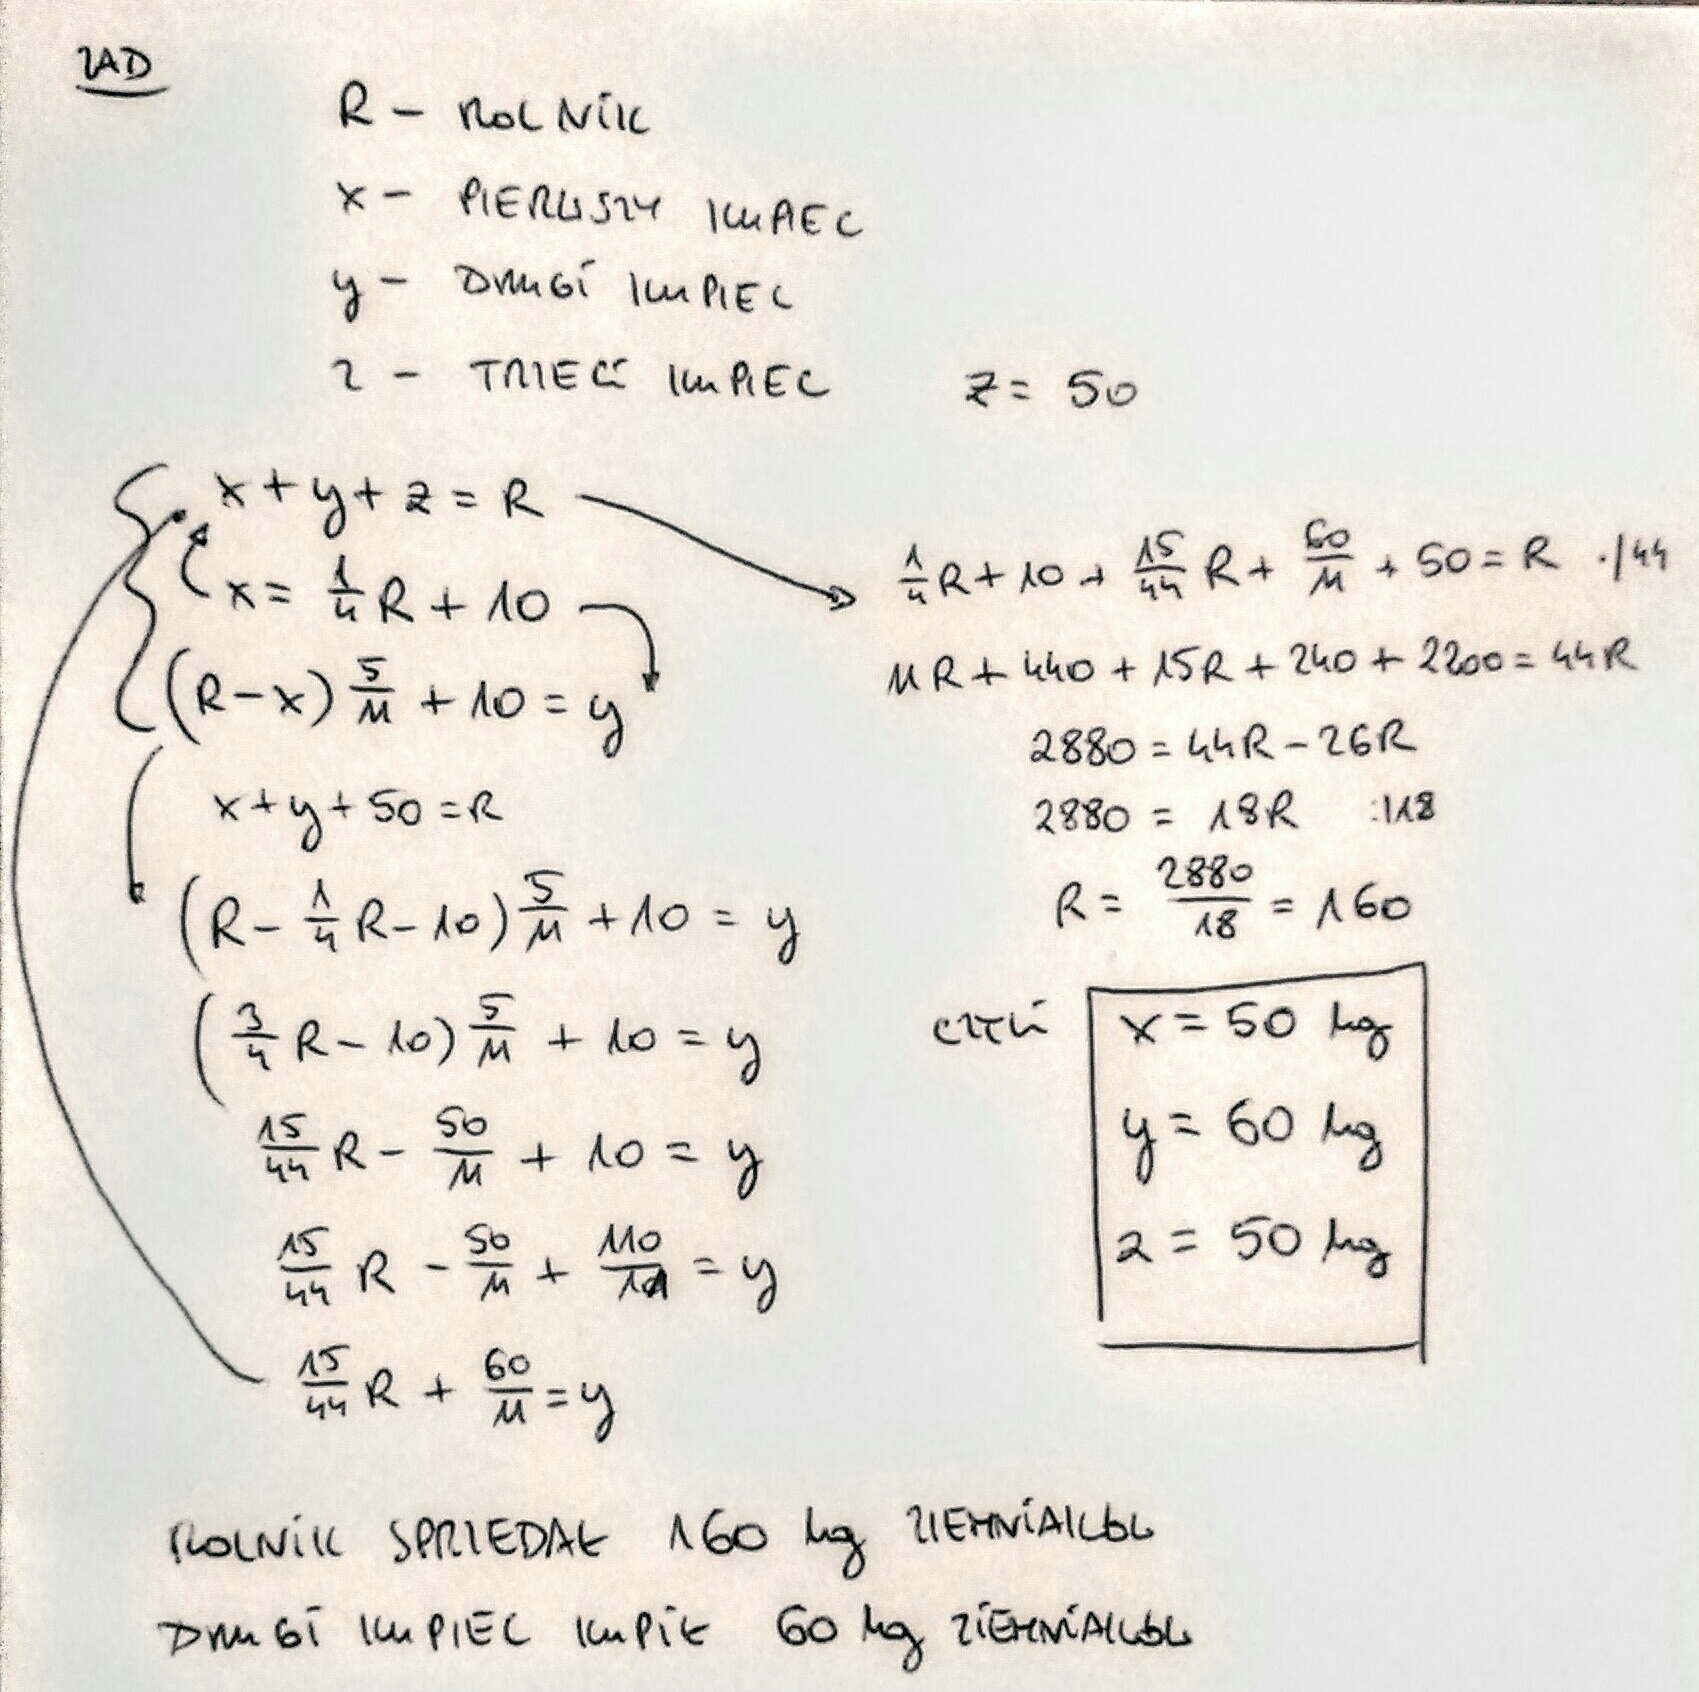 ZAD
R - ROLNIK
x - PIERWSZY KUPIEC
y - DRUGI KUPIEC
z - TRZECI KUPIEC z = 50
x + y + z = R
x = 1/4 R + 10
(R - x) 5/11 + 10 = y
x + y + 50 = R
(R - 1/4 R - 10) 5/11 + 10 = y
(3/4 R - 10) 5/11 + 10 = y
15/44 R - 50/11 + 10 = y
15/44 R - 50/11 + 110/11 = y
15/44 R + 60/11 = y
1/4 R + 10 + 15/44 R + 60/11 + 50 = R ·/44
11R + 440 + 15R + 240 + 2200 = 44R
2880 = 44R - 26R
2880 = 18R :/18
R = 2880/18 = 160
CZYLI x = 50 kg
y = 60 kg
z = 50 kg
ROLNIK SPRZEDAŁ 160 kg ZIEMNIAKÓW
DRUGI KUPIEC KUPIŁ 60 kg ZIEMNIAKÓW